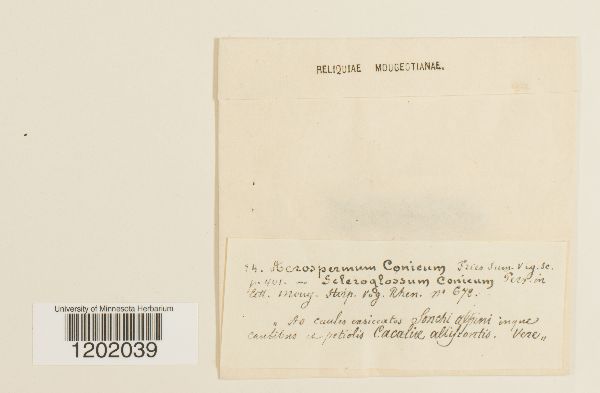 RELIQUIAE MOUGEOTIANAE.
Acrospermum Conicum Fries Sum. Veg. Sc.
p. 401. — Scleroglossum Conicum Pers. in
litt. Moug. Stirp. Vog. Rhen. n° 672.
„ Ad caules exsiccatos Sonchi alpini inque
caulibus et petiolis Cacaliæ Vere „
University of Minnesota Herbarium
1202039